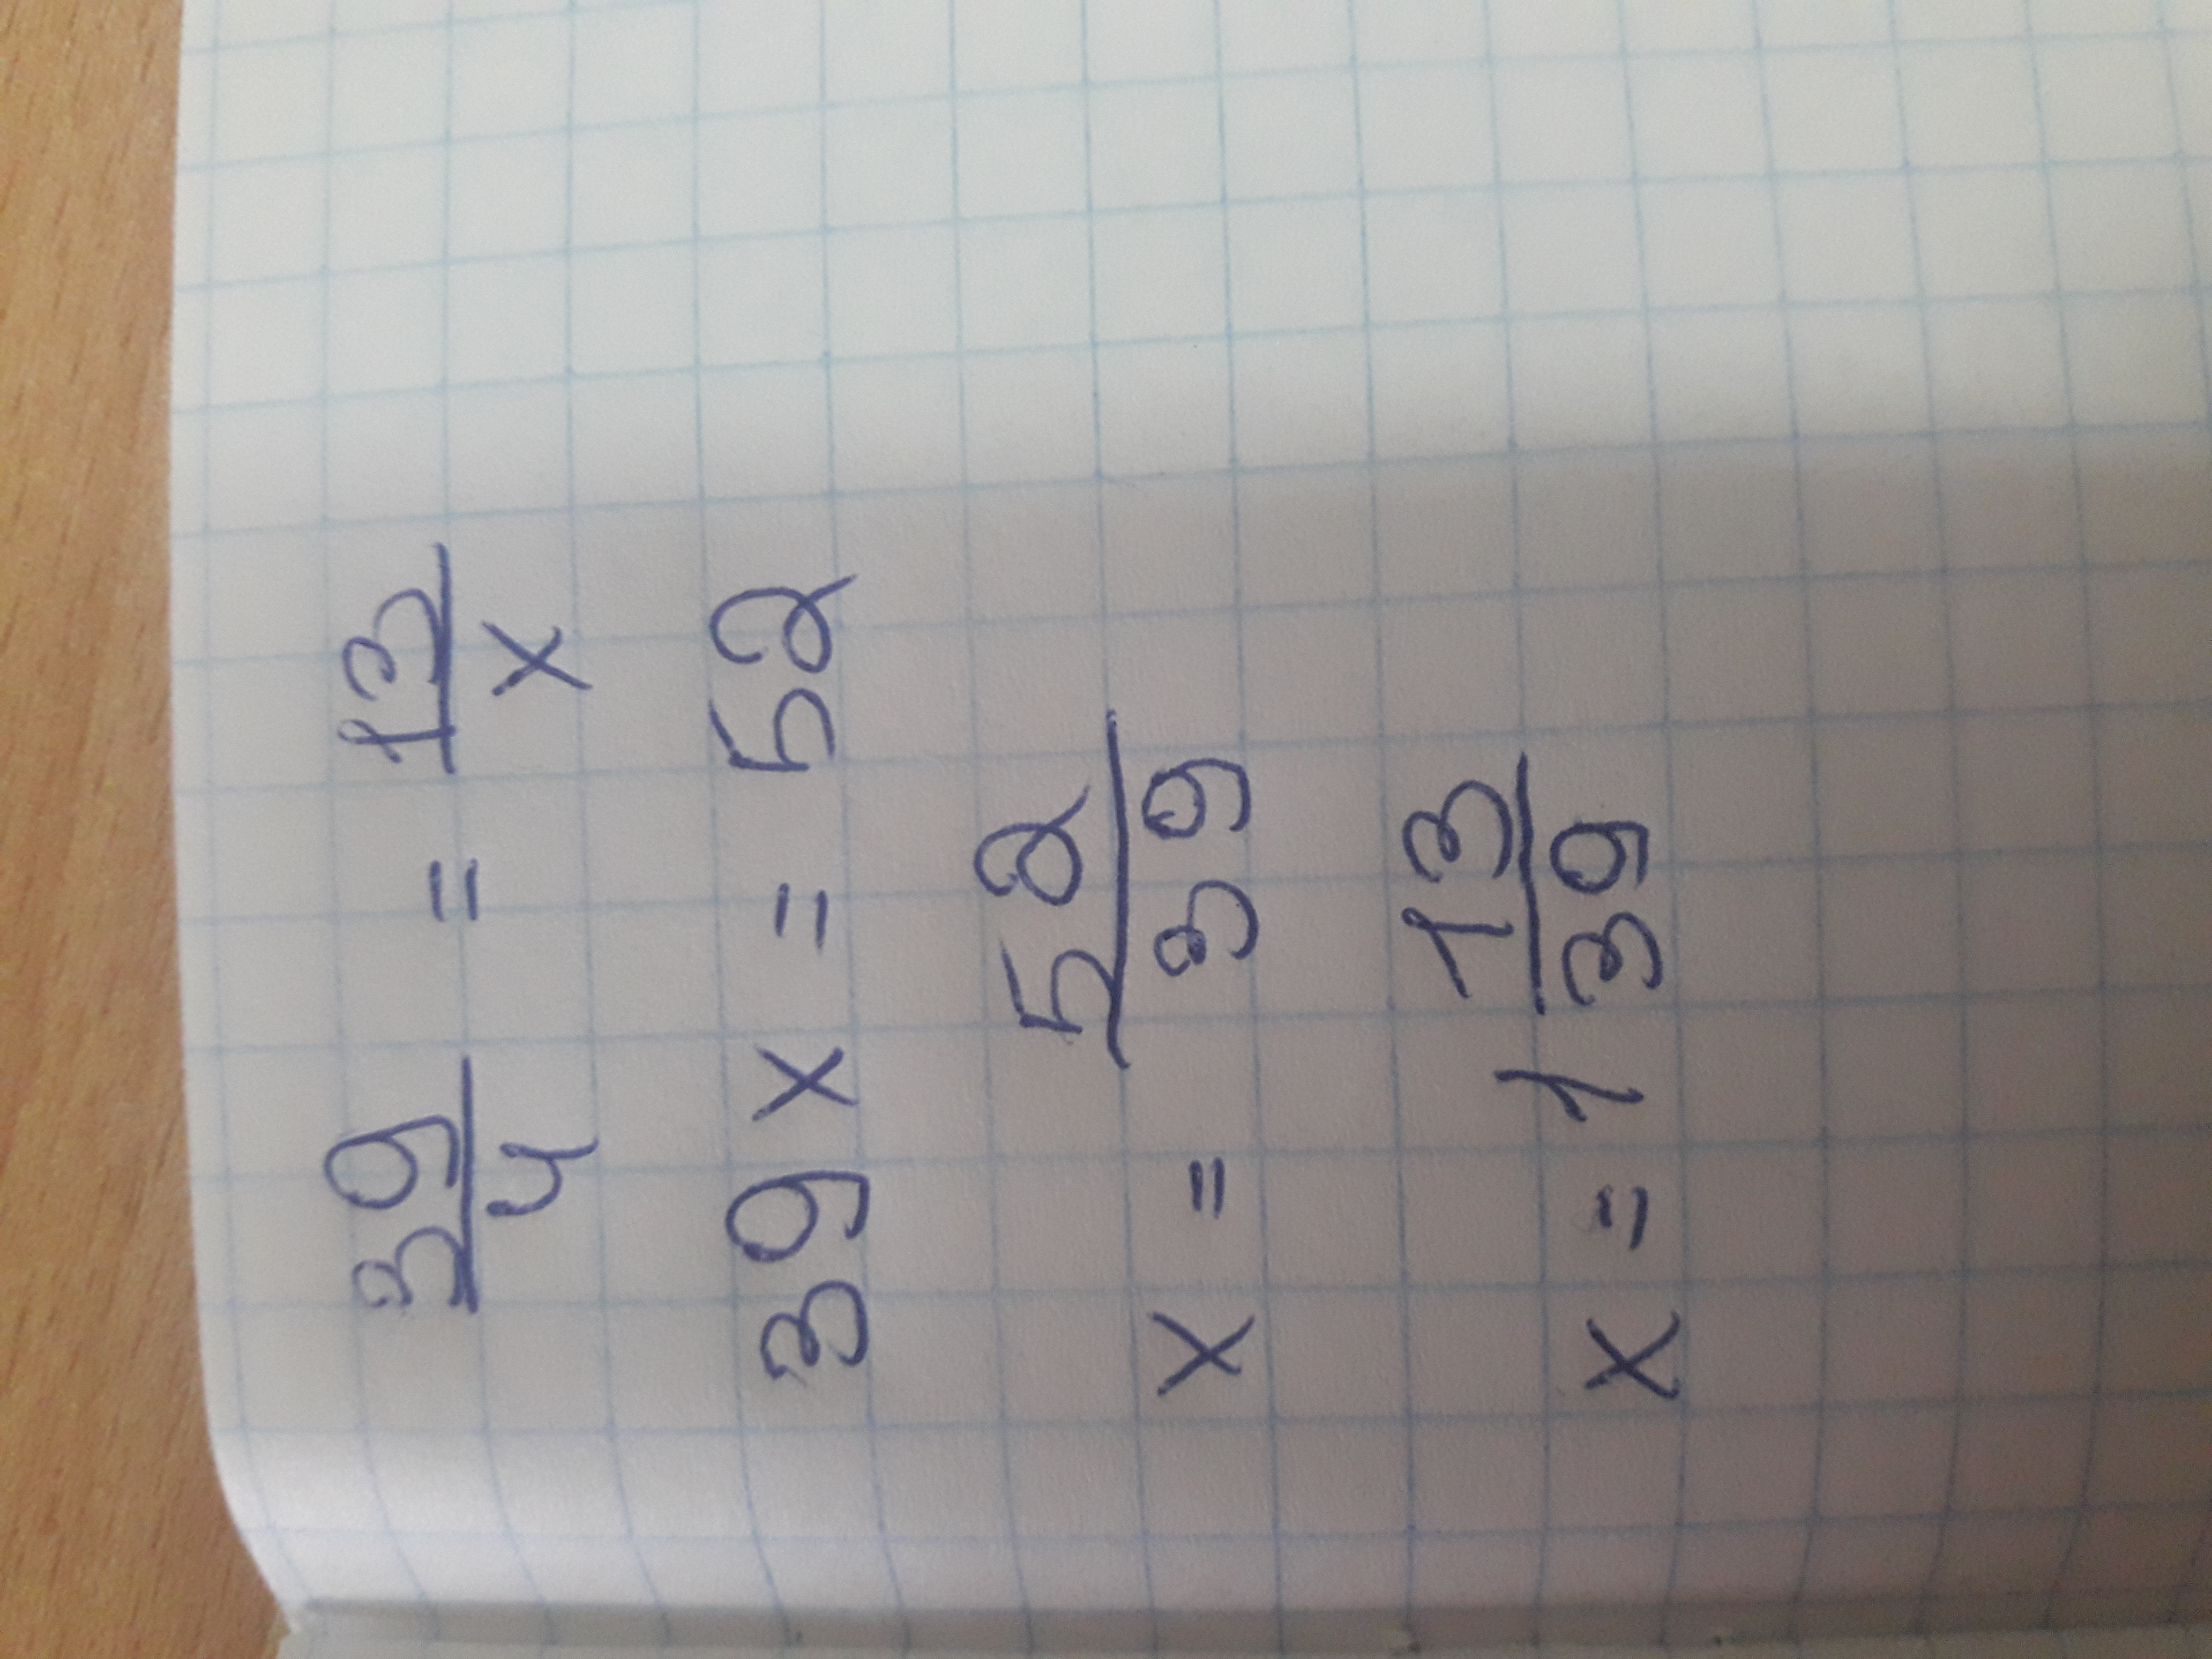 39/4 = 13/x
39x = 52
x = 52/39
x = 1 13/39